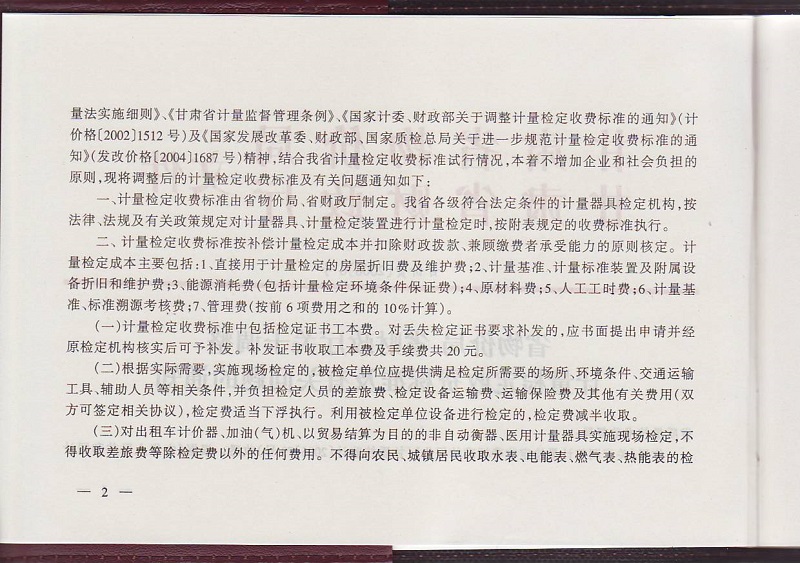 量法实施细则》、《甘肃省计量监督管理条例》、《国家计委、财政部关于调整计量检定收费标准的通知》(计
价格〔2002〕1512 号)及《国家发展改革委、财政部、国家质检总局关于进一步规范计量检定收费标准的通
知》(发改价格〔2004〕1687 号)精神,结合我省计量检定收费标准试行情况,本着不增加企业和社会负担的
原则,现将调整后的计量检定收费标准及有关问题通知如下:
一、计量检定收费标准由省物价局、省财政厅制定。我省各级符合法定条件的计量器具检定机构,按
法律、法规及有关政策规定对计量器具、计量检定装置进行计量检定时,按附表规定的收费标准执行。
二、计量检定收费标准按补偿计量检定成本并扣除财政拨款、兼顾缴费者承受能力的原则核定。计
量检定成本主要包括:1、直接用于计量检定的房屋折旧费及维护费;2、计量基准、计量标准装置及附属设
备折旧和维护费;3、能源消耗费(包括计量检定环境条件保证费);4、原材料费;5、人工工时费;6、计量基
准、标准溯源考核费;7、管理费(按前 6 项费用之和的 10%计算)。
(一)计量检定收费标准中包括检定证书工本费。对丢失检定证书要求补发的,应书面提出申请并经
原检定机构核实后可予补发。补发证书收取工本费及手续费共 20 元。
(二)根据实际需要,实施现场检定的,被检定单位应提供满足检定所需要的场所、环境条件、交通运输
工具、辅助人员等相关条件,并负担检定人员的差旅费、检定设备运输费、运输保险费及其他有关费用(双
方可签定相关协议),检定费适当下浮执行。利用被检定单位设备进行检定的,检定费减半收取。
(三)对出租车计价器、加油(气)机、以贸易结算为目的的非自动衡器、医用计量器具实施现场检定,不
得收取差旅费等除检定费以外的任何费用。不得向农民、城镇居民收取水表、电能表、燃气表、热能表的检
— 2 —